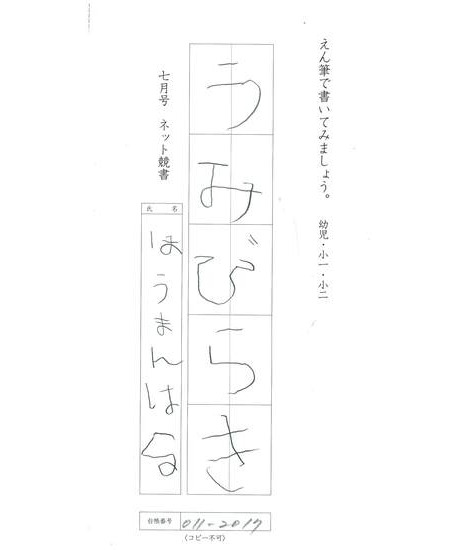 えん筆で書いてみましょう。 幼児・小一・小二
うみびらき
七月号 ネット競書
氏名
ほうまんはな
台帳番号 011-2017
(コピー不可)